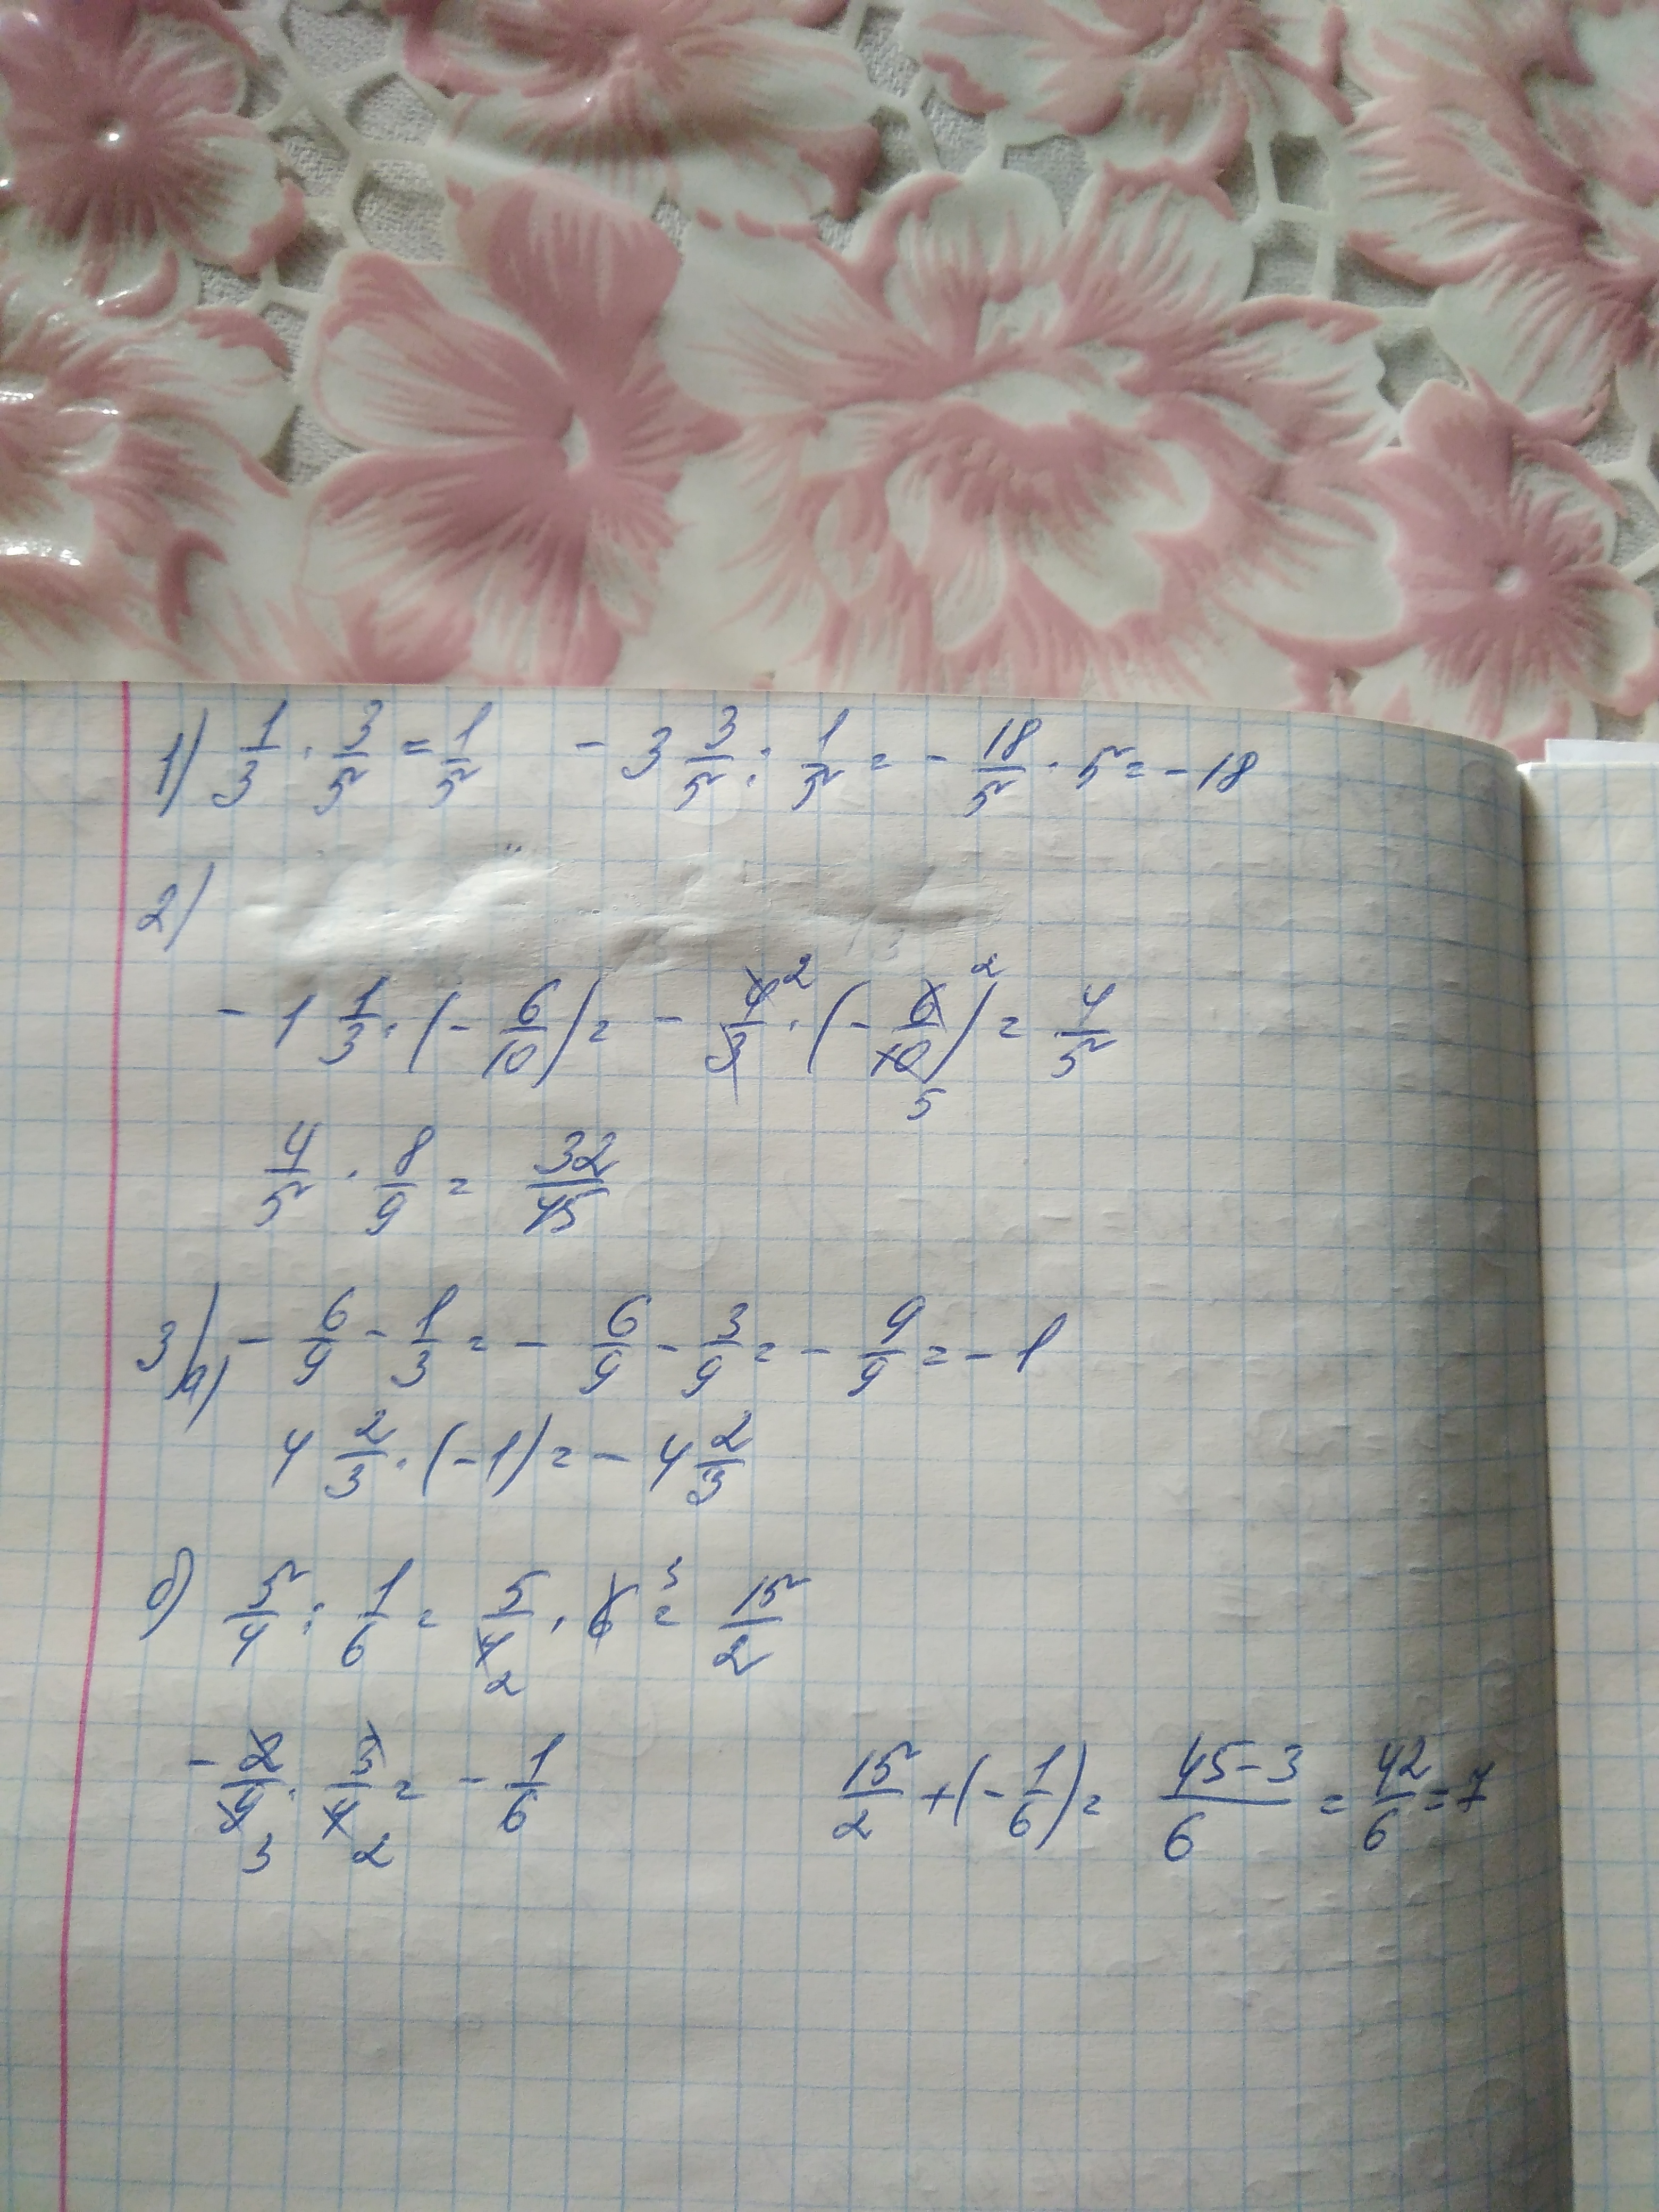 1) 1/3 · 3/5 = 1/5 - 3 3/5 : 1/5 = - 18/5 · 5 = -18
2)
- 1 1/3 · (- 6/10) = - 4/3 2 · (- 6/10 5) 2 = 4/5
4/5 · 8/9 = 32/45
3) а) - 6/9 - 1/3 = - 6/9 - 3/9 = - 9/9 = - 1
4 2/3 · (-1) = - 4 2/3
б) 5/4 : 1/6 = 5/4 2 · 6 3 = 15/2
- 2/9 3 · 3/4 2 = - 1/6 15/2 + (- 1/6) = 45-3/6 = 42/6 = 7